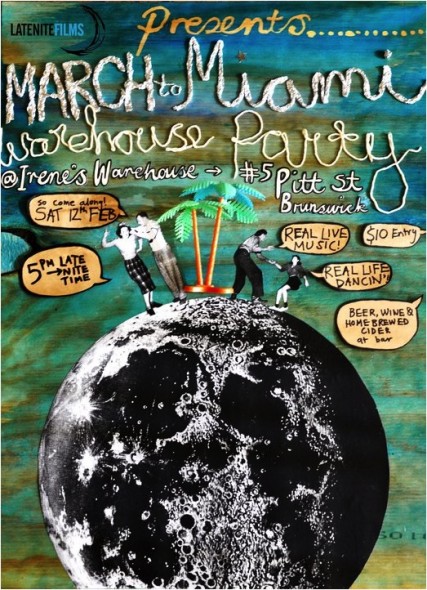 LATENITEFILMS
Presents.............
MARCH to Miami
warehouse Party
@Irene's Warehouse → #5 Pitt St
Brunswick
So come along!
SAT 12TH FEB
5PM LATE
→NITE
TIME
REAL LIVE
MUSIC!
$10 Entry
REAL LIFE
DANCIN'
BEER, WINE &
HOMEBREWED
CIDER
at bar